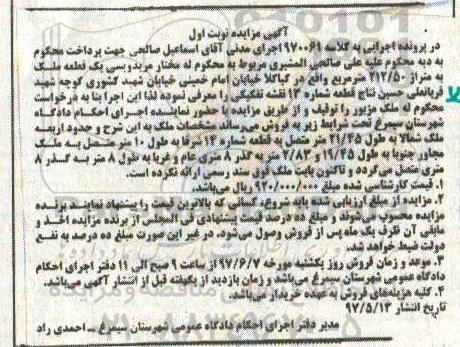 آگهی مزایده نوبت اول
در پرونده اجرایی به کلاسه ۹۷۰۰۶۱ اجرای مدنی آقای اسماعیل صالحی جهت پرداخت محکوم
به دیه محکوم علیه علی صالحی المشیری مربوط به محکوم له مختار مریدویسی یک قطعه ملک
به متراژ ۲۱۲/۵۰ مترمربع واقع در کیاکلا خیابان امام خمینی خیابان شهید کشوری کوچه شهید
قربانعلی حسین نتاج قطعه شماره ۱۳ نقشه تفکیکی را معرفی نموده لذا این اجرا بنا به درخواست
محکوم له ملک مزبور را توقیف و از طریق مزایده با حضور نماینده اجرای احکام دادگاه
شهرستان سیمرغ تحت شرایط زیر به فروش می‌رساند مشخصات ملک به این شرح و حدود اربعه
ملک شمالا به طول ۲۱/۴۵ متر متصل به قطعه نمره ۱۴ شرقا به طول ۱۰ متر متصل به ملک
مجاور جنوبا به طول ۱۹/۴۵ و ۲/۸۳ متر به گذر ۸ متری عام و غربا به طول ۸ متر به گذر ۸
متری متصل می‌گردد و تاکنون بابت ملک فوق سند رسمی ارائه نکرده است.
۱. قیمت کارشناسی شده مبلغ ۹۳۰/۰۰۰/۰۰۰ ریال می‌باشد.
۲. مزایده از مبلغ ارزیابی شده باید شروع، کسانی که بالاترین قیمت را پیشنهاد نمایند برنده
مزایده محسوب می‌شوند و مبلغ ده درصد قیمت پیشنهادی فی المجلس از برنده مزایده اخذ و
مابقی آن ظرف یک ماه پس از فروش وصول می‌شود. در غیر این صورت مبلغ ده درصد به نفع
دولت ضبط خواهد شد.
۳. موعد و زمان فروش روز یکشنبه مورخه ۹۷/۶/۷ از ساعت ۹ صبح الی ۱۱ دفتر اجرای احکام
دادگاه عمومی شهرستان سیمرغ می‌باشد و زمان بازدید از یکهفته قبل از انتشار آگهی می‌باشد.
۴. کلیه هزینه‌های فروش به عهده خریدار می‌باشد.
تاریخ انتشار ۹۷/۵/۱۳
مدیر دفتر اجرای احکام دادگاه عمومی شهرستان سیمرغ – احمدی راد